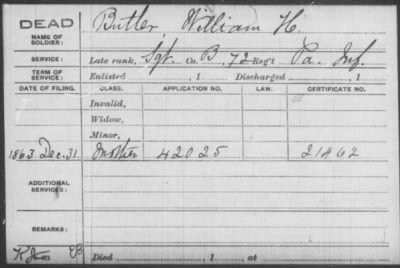 DEAD
NAME OF SOLDIER: Butler, William H.
SERVICE: Late rank, Sgt. Co. B, 72 Reg't Pa. Inf.
TERM OF SERVICE: Enlisted , 1 Discharged , 1
DATE OF FILING. CLASS. APPLICATION NO. LAW. CERTIFICATE NO.
Invalid,
Widow,
Minor,
1863 Dec. 31 Mother 42025 21862
ADDITIONAL SERVICES:
REMARKS:
Died , 1 , at